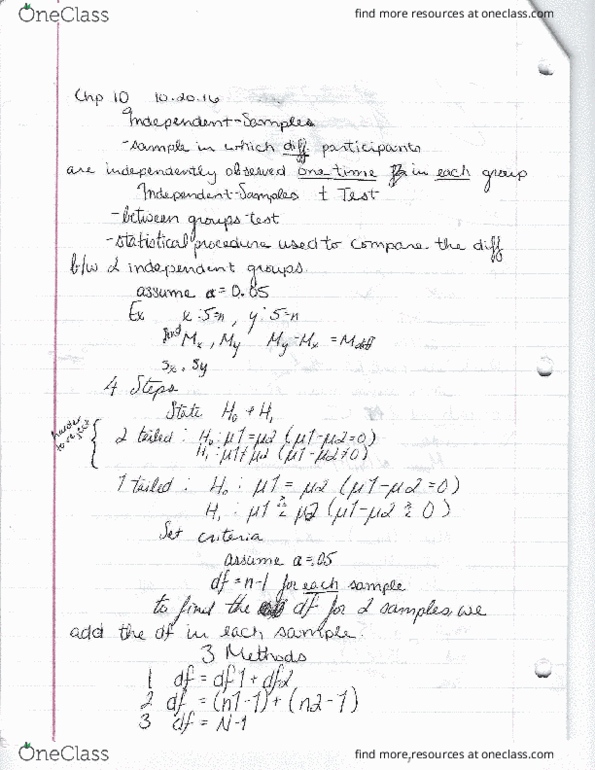 OneClass
find more resources at oneclass.com
Chp 10 10.20.16
Independent-Samples
-sample in which diff participants
are independently observed one time in each group
Independent-Samples t Test
-between groups test
-statistical procedure used to compare the diff
b/w 2 independent groups
assume α = 0.05
Ex x: 5=n, y: 5=n
find Mx, My My-Mx = Mdiff
sx, sy
4 Steps
State H0 + H1
harder to reject
2 tailed: H0: μ1=μ2 (μ1-μ2=0)
H1: μ1≠μ2 (μ1-μ2≠0)
1 tailed: H0: μ1 = μ2 (μ1-μ2 = 0)
H1: μ1 μ2 (μ1-μ2 0)
Set criteria
assume α=.05
df = n-1 for each sample
to find the df for 2 samples we
add the df in each sample.
3 Methods
1 df = df1 + df2
2 df = (n1-1) + (n2-1)
3 df = N-1
OneClass
find more resources at oneclass.com